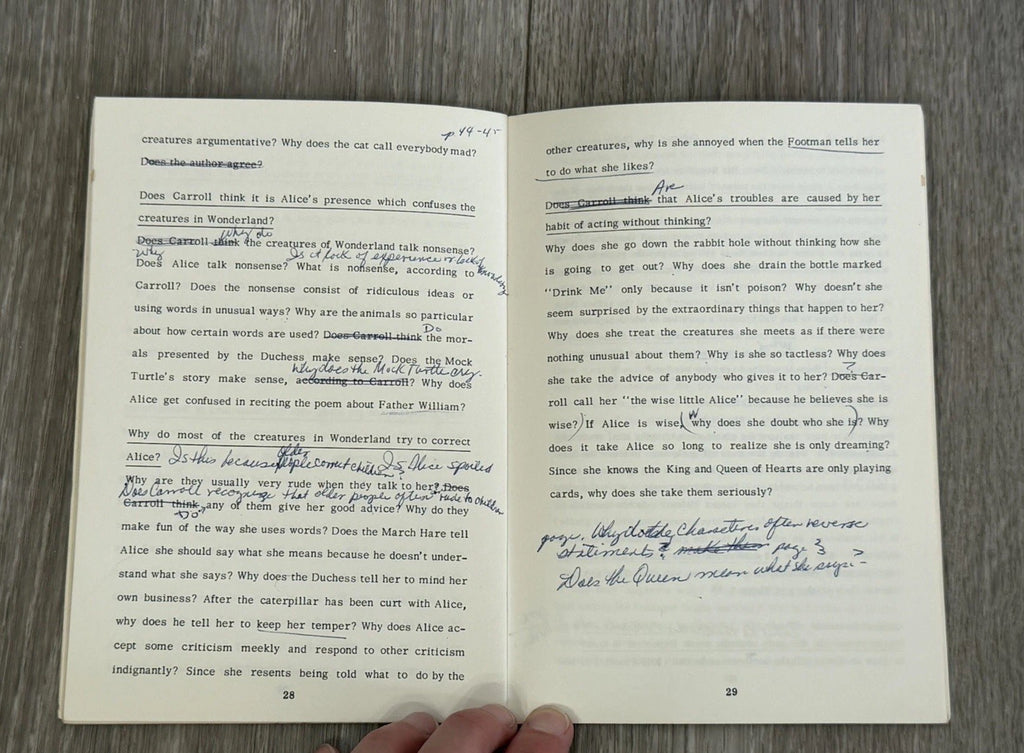 p 44-45
creatures argumentative? Why does the cat call everybody mad?
Does the author agree?
Does Carroll think it is Alice's presence which confuses the
creatures in Wonderland?
why do
Does Carroll think the creatures of Wonderland talk nonsense?
Why Is it lack of experience or lack of
Does Alice talk nonsense? What is nonsense, according to
Carroll? Does the nonsense consist of ridiculous ideas or
using words in unusual ways? Why are the animals so particular
Do
about how certain words are used? Does Carroll think the mor-
als presented by the Duchess make sense? Does the Mock
Why does the Mock Turtle cry.
Turtle's story make sense, according to Carroll? Why does
Alice get confused in reciting the poem about Father William?
Why do most of the creatures in Wonderland try to correct
older
Alice? Is this because people correct Is Alice spoiled
Why are they usually very rude when they talk to her? Does
Does Carroll recognize that older people often rude to children
Carroll think any of them give her good advice? Why do they
Do
make fun of the way she uses words? Does the March Hare tell
Alice she should say what she means because he doesn't under-
stand what she says? Why does the Duchess tell her to mind her
own business? After the caterpillar has been curt with Alice,
why does he tell her to keep her temper? Why does Alice ac-
cept some criticism meekly and respond to other criticism
indignantly? Since she resents being told what to do by the
28
other creatures, why is she annoyed when the Footman tells her
to do what she likes?
Are
Does Carroll think that Alice's troubles are caused by her
habit of acting without thinking?
Why does she go down the rabbit hole without thinking how she
is going to get out? Why does she drain the bottle marked
"Drink Me" only because it isn't poison? Why doesn't she
seem surprised by the extraordinary things that happen to her?
Why does she treat the creatures she meets as if there were
nothing unusual about them? Why is she so tactless? Why does
?
she take the advice of anybody who gives it to her? Does Car-
roll call her "the wise little Alice" because he believes she is
W
wise?) If Alice is wise, (why does she doubt who she is?) Why
does it take Alice so long to realize she is only dreaming?
Since she knows the King and Queen of Hearts are only playing
cards, why does she take them seriously?
page. Why do the characters often reverse
statements? make them page
Does the Queen mean what she says -?
29